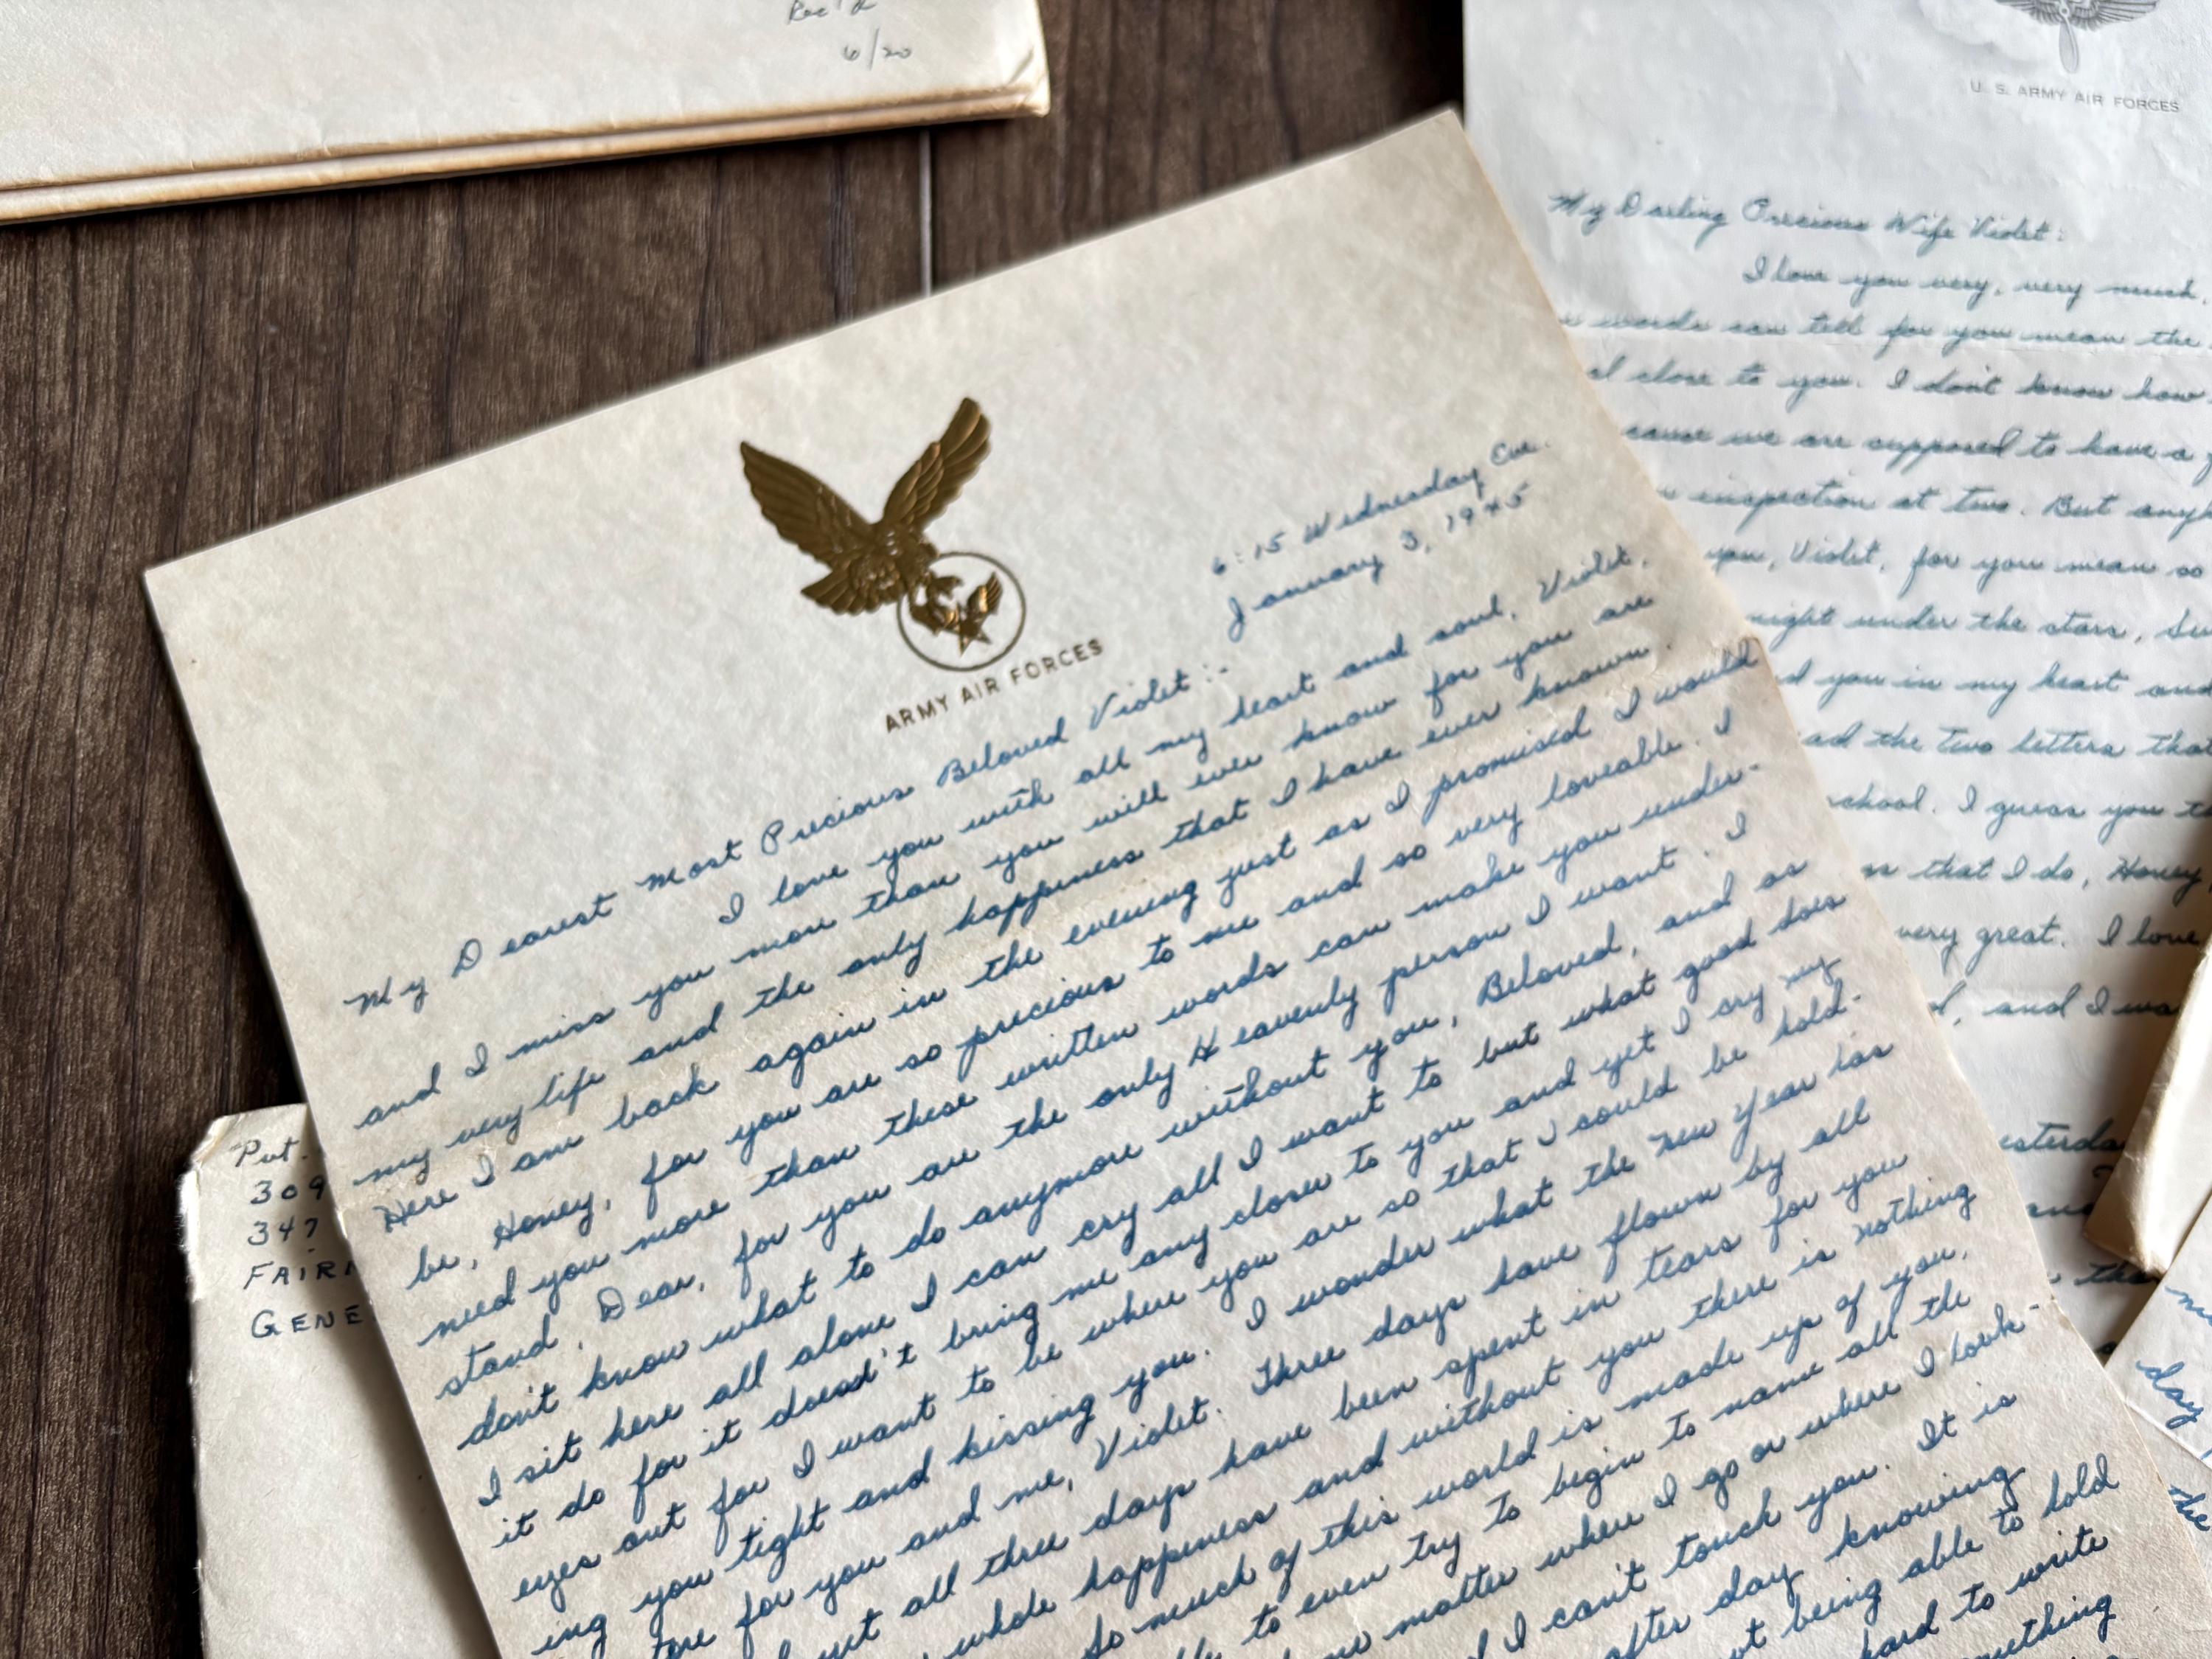 Rec'd
6/20
U. S. ARMY AIR FORCES
My Darling Precious Wife Violet:
I love you very, very much,
words can tell for you mean the
close to you. I don't know how
cause we are supposed to have a
inspection at two. But
you, Violet, for you mean so
night under the stars,
you in my heart and
the two letters that
I guess you
that I do, Honey,
very great. I love
and I
ARMY AIR FORCES
6:15 Wednesday Eve.
January 3, 1945
My Dearest Most Precious Beloved Violet:-
I love you with all my heart and soul, Violet,
and I miss you more than you will ever know for you are
my very life and the only happiness that I have ever known.
Here I am back again in the evening just as I promised I would
be, Honey, for you are so precious to me and so very loveable. I
need you more than these written words can make you under-
stand, Dear, for you are the only Heavenly person I want. I
don't know what to do anymore without you, Beloved, and as
I sit here all alone I can cry all I want to but what good does
it do for it doesn't bring me any closer to you and yet I cry my
eyes out for I want to be where you are so that I could be hold-
ing you tight and kissing you. I wonder what the New Year has
for you and me, Violet. Three days have flown by all
all three days have been spent in tears for you
whole happiness and without you there is nothing
So much of this world is made up of you,
to even try to begin to name all the
matter where I go or where I look-
I can't touch you. It is
after day knowing
being able to hold
hard to write
Pvt.
309
347
GENE
day
the